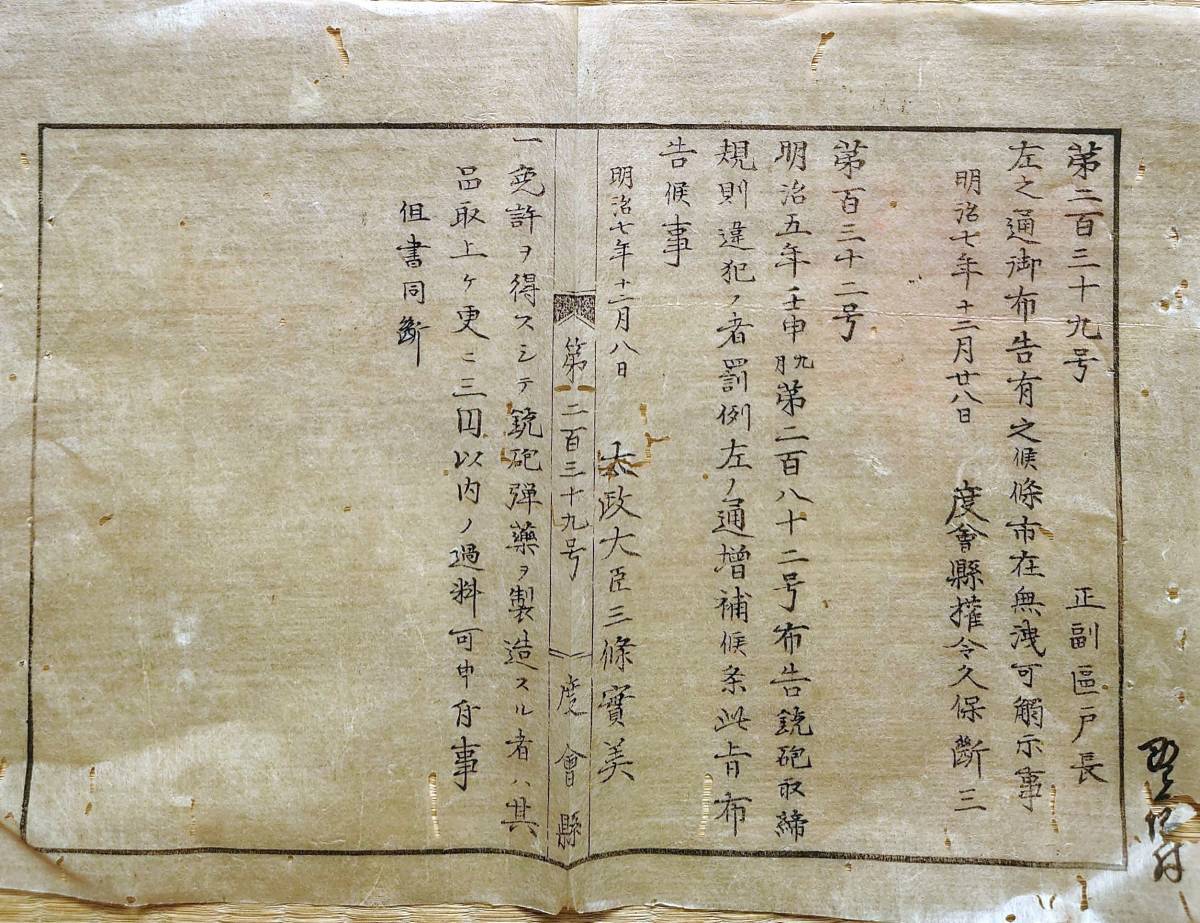 第二百三十九号
正副區戸長
左之通御布告有之候條市在無洩可觸示事
明治七年十二月廿八日 度會縣權令久保斷三
第百三十二号
明治五年壬申九月第二百八十二号布告銃砲取締
規則違犯ノ者罰例左ノ通増補候条此旨布
告候事
明治七年十二月八日 太政大臣三條實美
第二百三十九号 度會縣
一免許ヲ得スシテ銃砲弾藥ヲ製造スル者ハ其
品取上ケ更ニ三円以内ノ過料可申付事
但書同斷